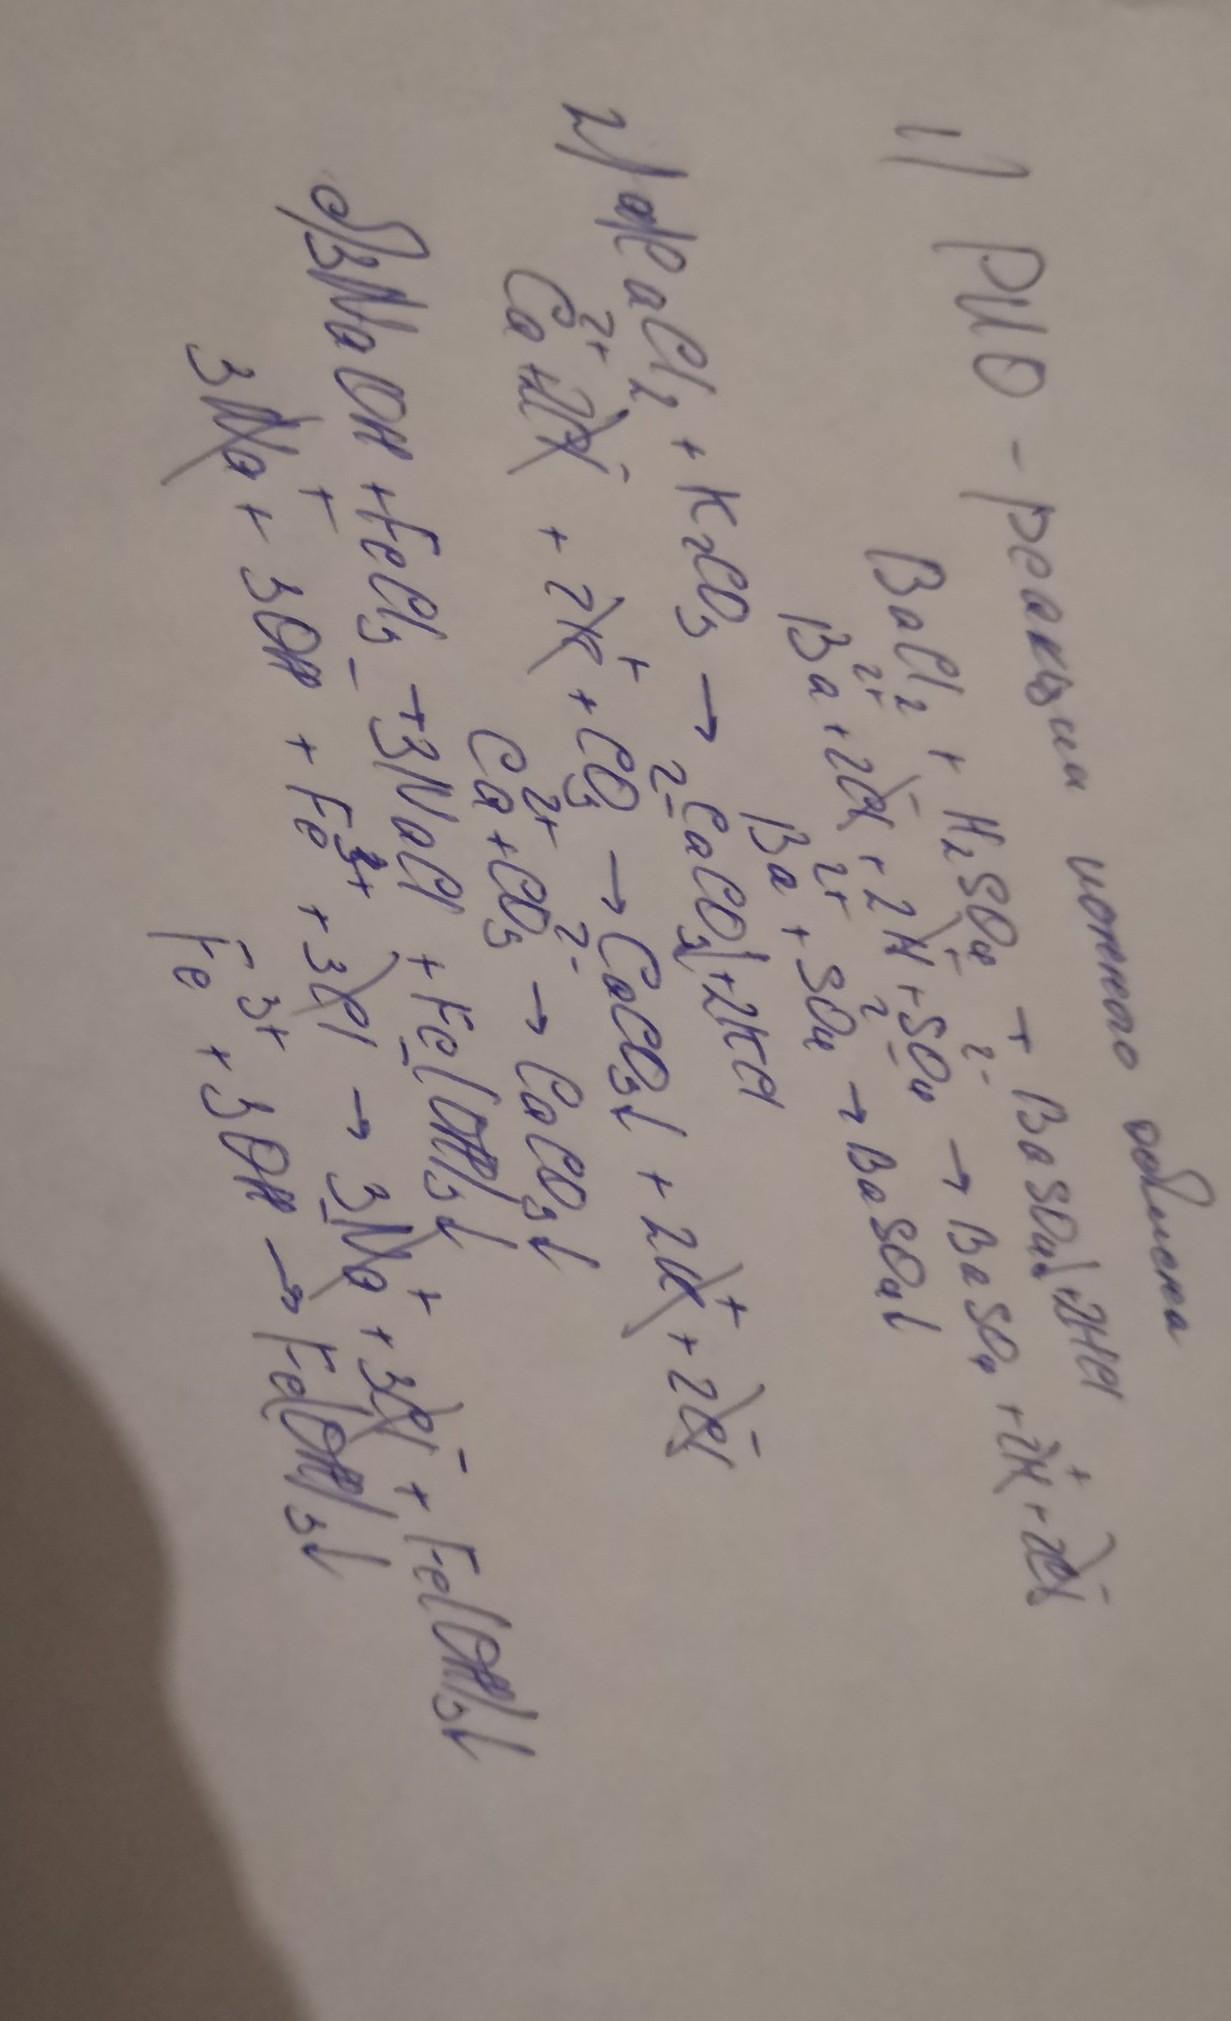 1) РИО - реакции ионного обмена
BaCl₂ + H₂SO₄ → BaSO₄↓+2HCl
Ba²⁺+2Cl⁻+2H⁺+SO₄²⁻ → BaSO₄+2H⁺+2Cl⁻
Ba²⁺+SO₄²⁻ → BaSO₄↓
2) а) CaCl₂ + K₂CO₃ → CaCO₃↓+2KCl
Ca²⁺+2Cl⁻ + 2K⁺+CO₃²⁻ → CaCO₃↓ + 2K⁺+2Cl⁻
Ca²⁺+CO₃²⁻ → CaCO₃↓
б) 3NaOH + FeCl₃ → 3NaCl + Fe(OH)₃↓
3Na⁺ + 3OH⁻ + Fe³⁺ + 3Cl⁻ → 3Na⁺ + 3Cl⁻ + Fe(OH)₃↓
Fe³⁺ + 3OH⁻ → Fe(OH)₃↓